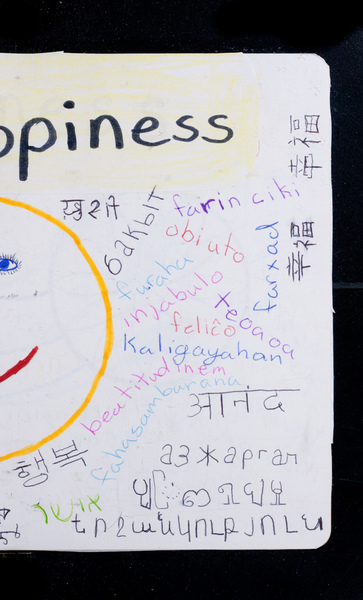 ppiness
幸福
ख़ुशी
бақыт
farin ciki
obi uto
farxad
幸福
furaha
injabulo
xeoaoa
feliĉo
Kaligayahan
beatitudinem
fahasambarana
आनंद
행복
аз жаргал
אושר
երջանկություն